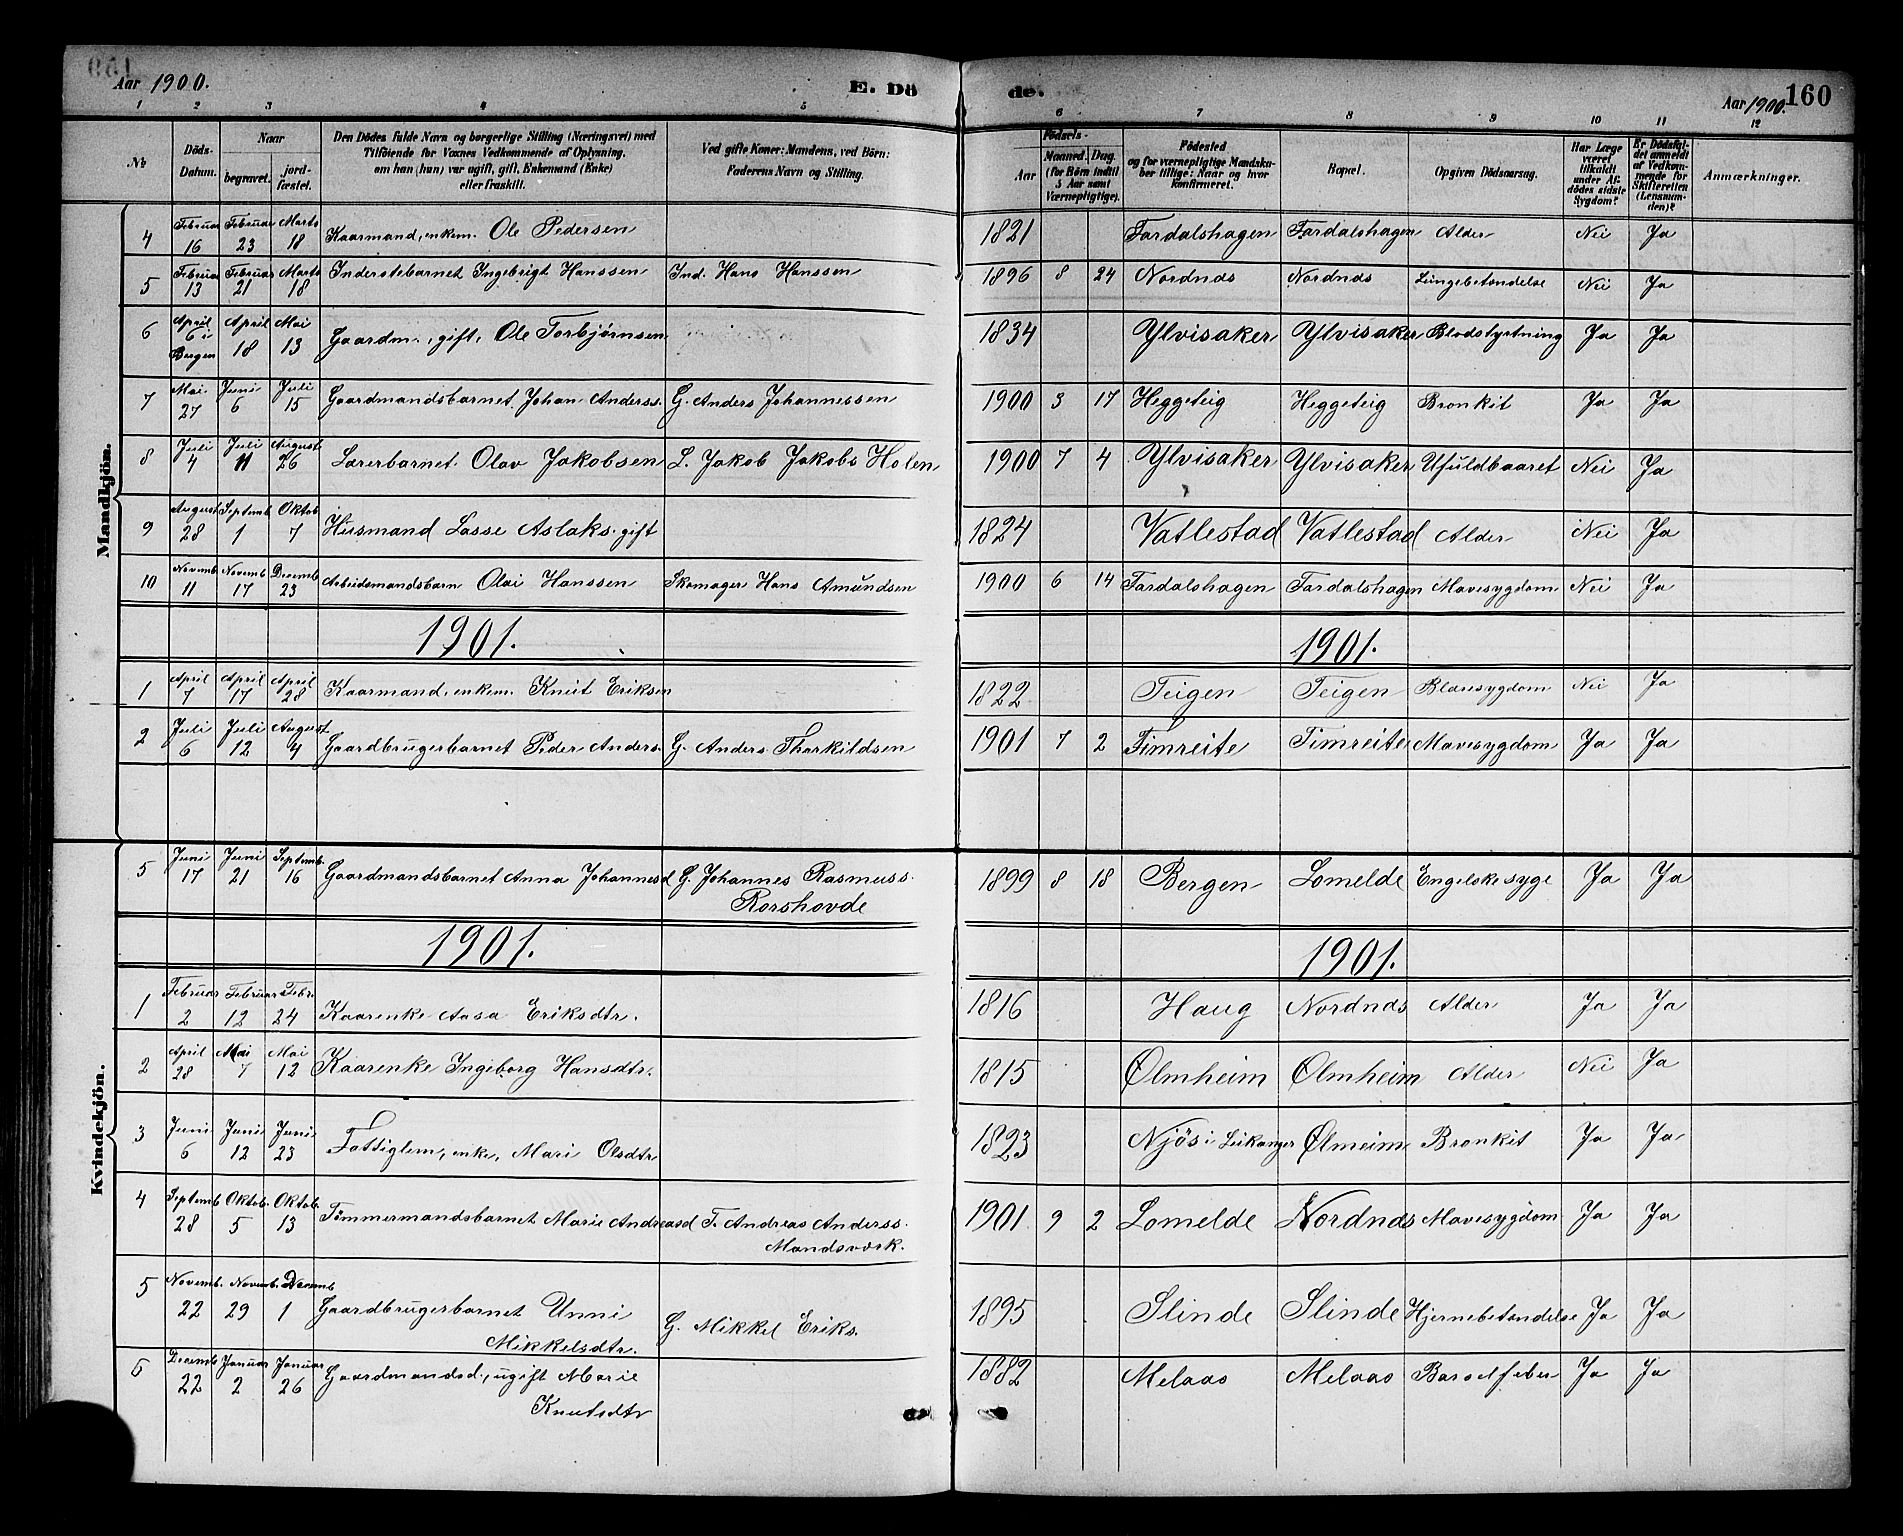 Aar 1900.
E. Dö
de.
Aar 1900.
160
1 2 3 4 5
6 7 8 9 10 11 12
No
Döds-Datum.
Naar
begravet.
jordfæstet.
Den Dödes fulde Navn og borgerlige Stilling (Næringsvei) med
Tilföiende for Voxnes Vedkommende af Oplysning,
om han (hun) var ugift, gift, Enkemand (Enke)
eller fraskilt.
Ved gifte Koner: Mandens, ved Börn:
Faderens Navn og Stilling.
Födsels-
Aar
Maaned. Dag.
(for Börn indtil
5 Aar samt
Værnepligtige).
Födested
og for værnepligtige Mandskaber tillige: Naar og hvor
konfirmeret.
Bopæl.
Opgiven Dödsaarsag.
Har Læge
været
tilkaldt
under Afdödes sidste
Sygdom?
Er Dödsfaldet anmeldt
af Vedkommende for
Skifteretten
(Lensmanden)?
Anmærkninger.
Mandkjön.
4 Februar 16 Februar 23 Marts 18 Kaarmand, enkem. Ole Pedersen 1821 Fardalshagen Fardalshagen Alder Nei Ja
5 Februar 13 Februar 21 Marts 18 Inderstebarnet Ingebrigt Hanssen Ind. Hans Hanssen 1896 8 24 Nordnæs Nordnæs Lungebetændelse Nei Ja
6 April 6 i Bergen April 18 Mai 13 Gaardm., gift, Ole Torbjørnsen 1834 Ylvisaker Ylvisaker Blodstyrtning Ja Ja
7 Mai 27 Juni 6 Juli 15 Gaardmandsbarnet Johan Anderss. G. Anders Johannessen 1900 3 17 Heggeteig Heggeteig Bronkit Ja Ja
8 Juli 4 Juli 11 August 26 Lærerbarnet Olav Jakobsen L. Jakob Jakobs Holen 1900 7 4 Ylvisaker Ylvisaker Ufuldbaaret Nei Ja
9 August 28 Septemb. 1 Oktob. 7 Husmand Lasse Aslaks. gift 1824 Vatlestad Vatlestad Alder Nei Ja
10 Novemb. 11 Novemb. 17 Decemb. 23 Arbeidsmandsbarn Olai Hanssen Skomager Hans Amundsen 1900 6 14 Fardalshagen Fardalshagen Mavesygdom Nei Ja
1901. 1901.
1 April 7 April 17 April 28 Kaarmand, enkem. Knut Eriksen 1822 Teigen Teigen Blæresygdom Nei Ja
2 Juli 6 Juli 12 August 4 Gaardbrugerbarnet Peder Anders. G. Anders Tharkildsen 1901 7 2 Fimreite Fimreite Mavesygdom Ja Ja
Kvindekjön.
5 Juni 17 Juni 21 Septemb. 16 Gaardmandsbarnet Anna Johannesd G. Johannes Rasmuss. 1899 8 18 Bergen Lomelde Engelskesyge Ja Ja
Rorshovde
1901. 1901.
1 Februar 2 Februar 12 Febr. 24 Kaarenke Aasa Eriksdtr. 1816 Haug Nordnæs Alder Ja Ja
2 April 28 Mai 7 Mai 12 Kaarenke Ingeborg Hansdtr. 1815 Ølmheim Ølmheim Alder Nei Ja
3 Juni 6 Juni 12 Juni 23 Fattiglem, enke, Mari Olsdtr 1823 Njøs i Leikanger Ølmeim Bronkit Ja Ja
4 Septemb 28 Oktob. 5 Oktob. 13 Tömmermandsbarnet Marie Andreasd T. Andreas Anderss. 1901 9 2 Lomelde Nordnæs Mavesygdom Ja Ja
Mandsværk.
5 Novemb. 22 Novemb. 29 Decemb 1 Gaardbrugerbarnet Unni G. Mikkel Eriks. 1895 Slinde Slinde Hjernebetændelse Ja Ja
Mikkelsdtr.
6 Decemb 22 Januar 2 Januar 26 Gaardmandsd., ugift Marie 1882 Melaas Melaas Barselfeber Ja Ja
Knutsdtr